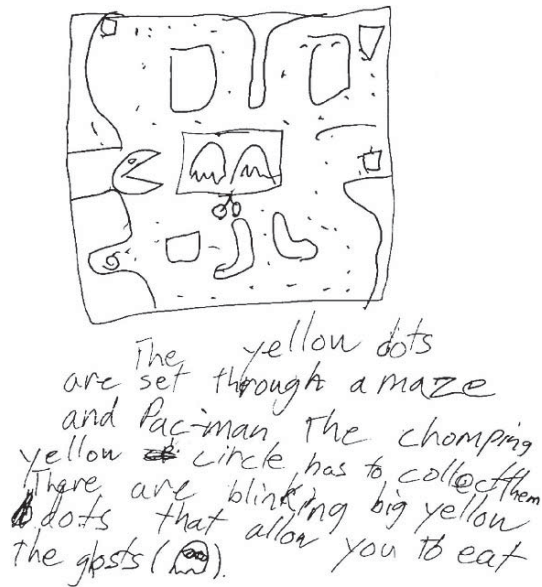 The yellow dots
are set through a maze
and Pac-man The chomping
yellow circle has to collect them
There are blinking big yellow
dots that allow you to eat
the gosts ( ).